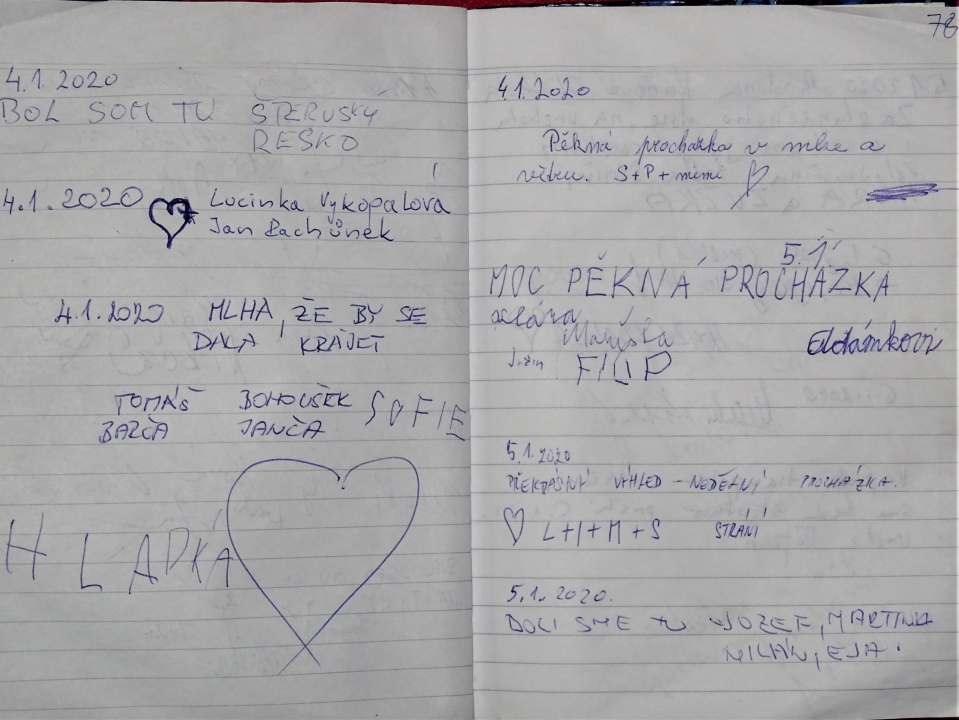 4.1.2020
BOL SOM TU ŠTERUSKY
RESKO
4.1.2020 Lucinka Vykopalová
Jan
4.1.2020 MLHA, ŽE BY SE
DALA KRÁJET
TOMÁŠ BOHOUŠEK SOFIE
BARČA JANČA
HLADKÁ
78
4.1.2020
Pěkná procházka v mlze a
větru. S+P+mimi
5.1.
MOC PĚKNÁ PROCHÁZKA
Maruška
FILIP
Adámkovi
5.1.2020
PŘEKRÁSNÝ VÝHLED - NEDĚLNÍ PROCHÁZKA.
L+I+M+S STRÁNÍ
5.1.2020.
BOLI SME TU JOZEF, MARTINA
MILAN, EJA.